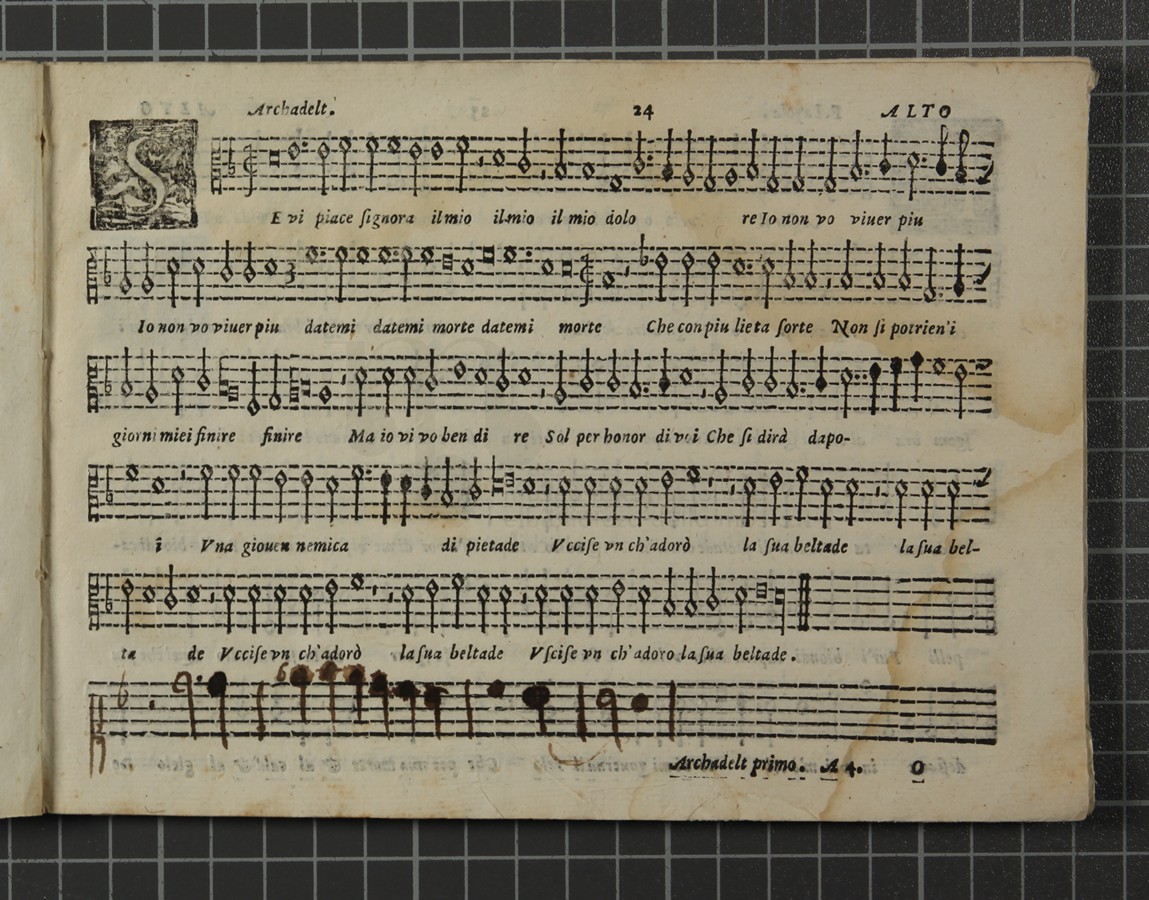 Archadelt. 24 ALTO
SE vi piace ſignora il mio il mio il mio dolo re Io non vo viuer piu
Io non vo viuer piu datemi datemi morte datemi morte Che con piu lieta ſorte Non ſi potrien'i
giorni miei finire finire Ma io vi vo ben di re Sol per honor di voi Che ſi dirà dapo-
i Vna giouen nemica di pietade Vcciſe vn ch'adorò la ſua beltade la ſua bel-
ta de Vcciſe vn ch'adorò la ſua beltade Vſciſe vn ch'adoro la ſua beltade.
Archadelt primo. A 4. O